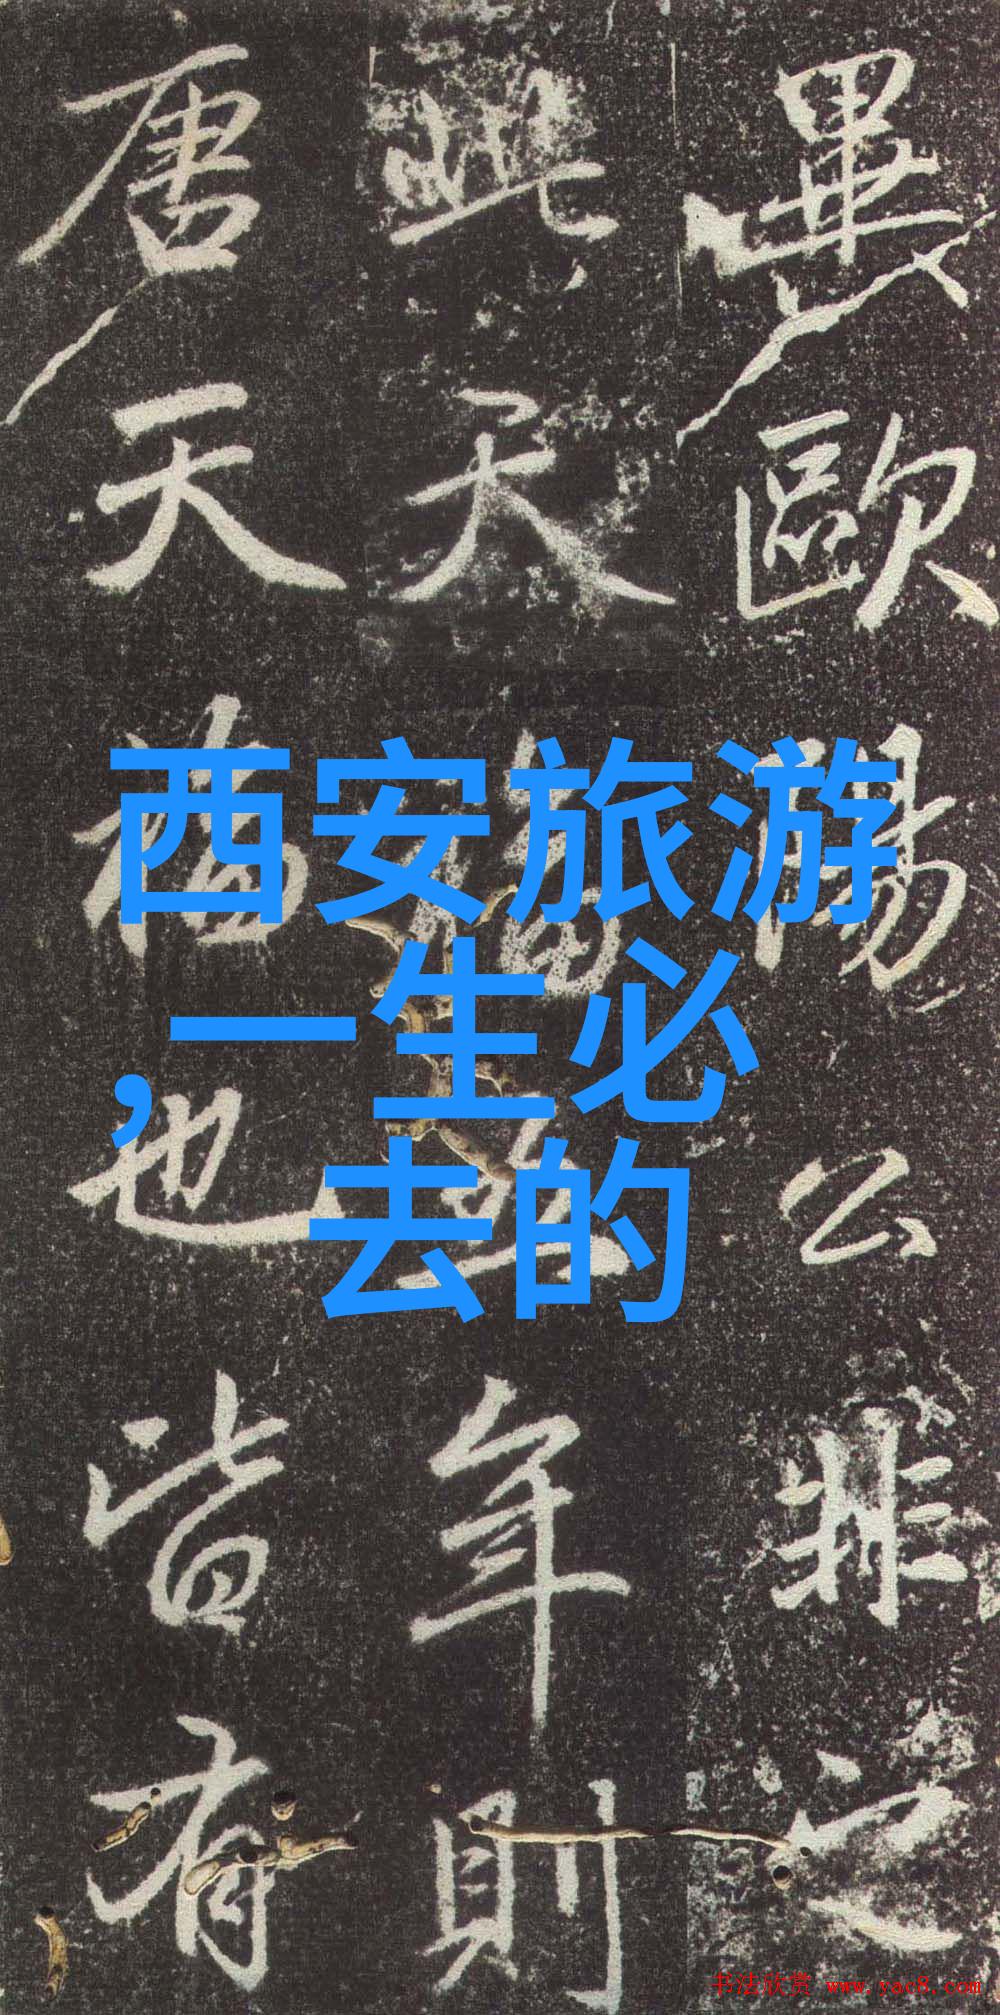 畢歐陽公非之
此天年則
唐天也皆有
西安旅游
,一生必
去的
书法欣赏 www.yac8.com